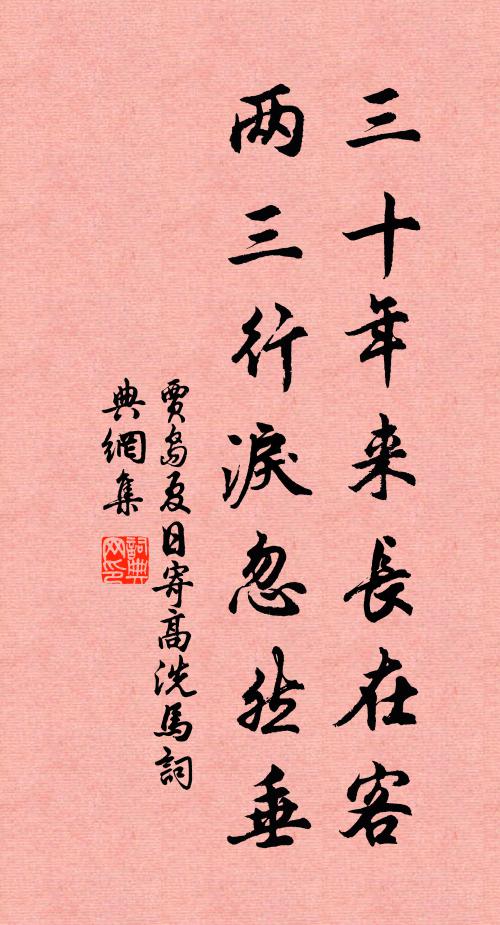 三十年来長在客
两三行淚忽然垂
賈島夏日寄高洗馬詞
典網集
詞典
网印